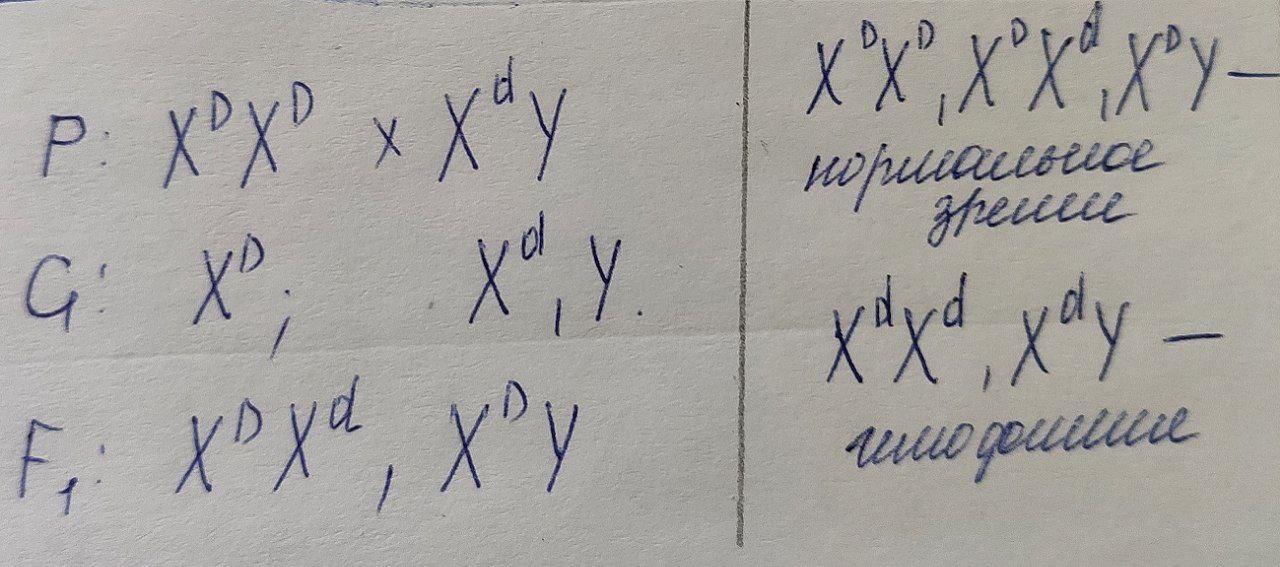 P: XᴰXᴰ × XᵈY
G: Xᴰ; Xᵈ, Y.
F₁: XᴰXᵈ, XᴰY
XᴰXᴰ, XᴰXᵈ, XᴰY —
нормальное
зрение
XᵈXᵈ, XᵈY —